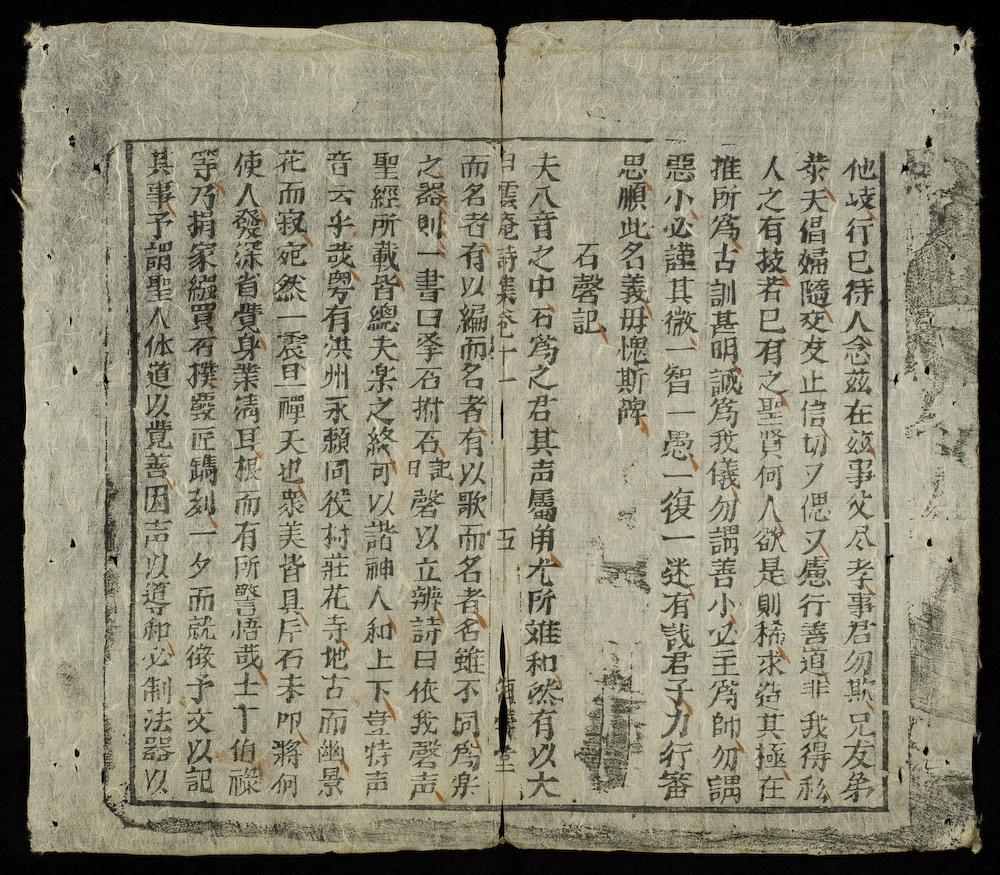 他岐行已待人念茲在茲事父尽孝事君勿欺兄友弟
恭夫倡婦隨交友止信切又偲又慝行善道非我得私
人之有技若已有之聖賢何人欲是則稀求造其極在
推所為古訓甚明誠為我儀勿謂善小必主為師勿謂
惡小必謹其微一智一愚一復一迷有哉君子力行審
思顧此名義毋愧斯碑
石磬記
夫八音之中石為之君其声属角尤所难和然有以大
白雲庵詩集卷十一 五
而名者有以編而名者有以歌而名者名雖不同為楽
之器則一書曰擊石拊石記曰磬以立辨詩曰依我磬声
聖經所載皆總夫楽之終可以諧神人和上下豈特声
音云乎哉粤有洪州永頼同役村莊花寺地古而幽景
花而寂宛然一震旦禪天也衆美皆具斤石未叩將何
使人發深省覺身業清旦根而有所警悟哉士丁伯祿
等乃捐家緡買石璞慶匠鐫刻一夕而就徵予文以記
其事予謂聖人体道以覺善因声以導和必制法器以